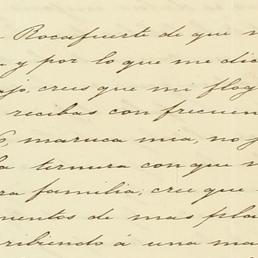 Rocafuerte de que n
y por lo que me dic
ajo, crees que mi flog
recibas con frecuen
maruca mia, no p
la ternura con que n
ra familia; cree que
mentos de mas pla
ribiendo á una ma